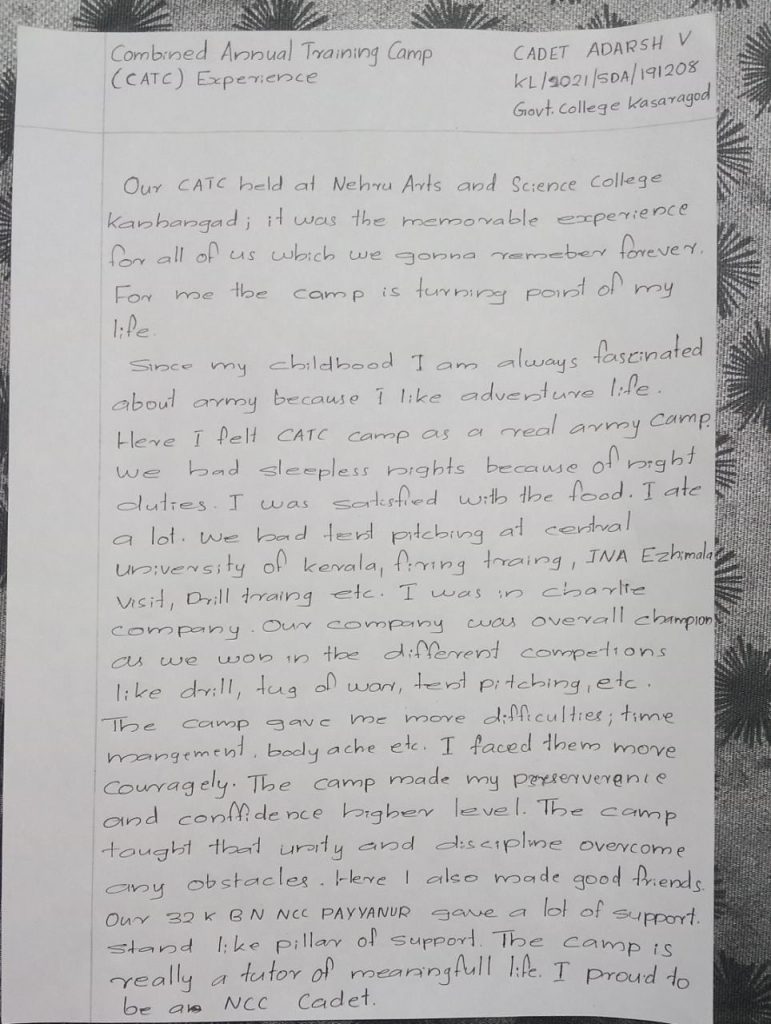 Combined Annual Training Camp
(CATC) Experience
CADET ADARSH V
KL/2021/SDA/191208
Govt. College Kasaragod
Our CATC held at Nehru Arts and Science College
Kanhangad; it was the memorable experience
for all of us which we gonna remeber forever.
For me the camp is turning point of my
life.
Since my childhood I am always fascinated
about army because I like adventure life.
Here I felt CATC camp as a real army camp.
We had sleepless nights because of night
duties. I was satisfied with the food. I ate
a lot. We had tent pitching at central
university of kerala, firing traing, INA Ezhimala
visit, Drill traing etc. I was in charlie
company. Our company was overall champion
as we won in the different competions
like drill, tug of war, tent pitching, etc.
The camp gave me more difficulties; time
mangement, body ache etc. I faced them more
couragely. The camp made my perserverance
and conffidence higher level. The camp
taught that unity and discipline overcome
any obstacles. Here I also made good friends.
Our 32 K BN NCC PAYYANUR gave a lot of support.
stand like pillar of support. The camp is
really a tutor of meaningfull life. I proud to
be an NCC Cadet.